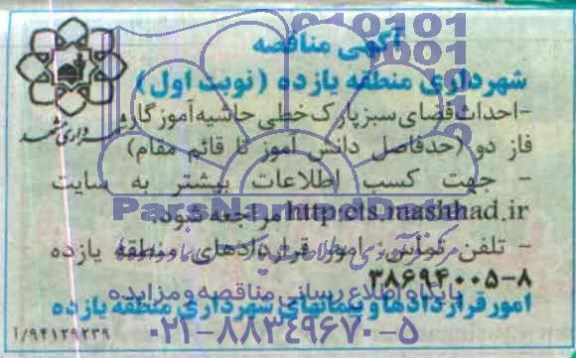 آگهی مناقصه
شهرداری منطقه یازده (نوبت اول)
-احداث فضای سبز پارک خطی حاشیه آموزگار
فاز دو (حدفاصل دانش آموز تا قائم مقام)
- جهت کسب اطلاعات بیشتر به سایت
http:cts.mashhad.ir مراجعه شود.
- تلفن تماس: امور قراردادهای منطقه یازده
۳۸۶۹۴۰۰۵-۸
امور قراردادها و پیمانهای شهرداری منطقه یازده
۹۴۱۲۹۲۳۹/آ
شهرداری مشهد
ParsNamadData
پایگاه اطلاع رسانی مناقصه و مزایده
۰۲۱-۸۸۳۴۹۶۷۰-۵